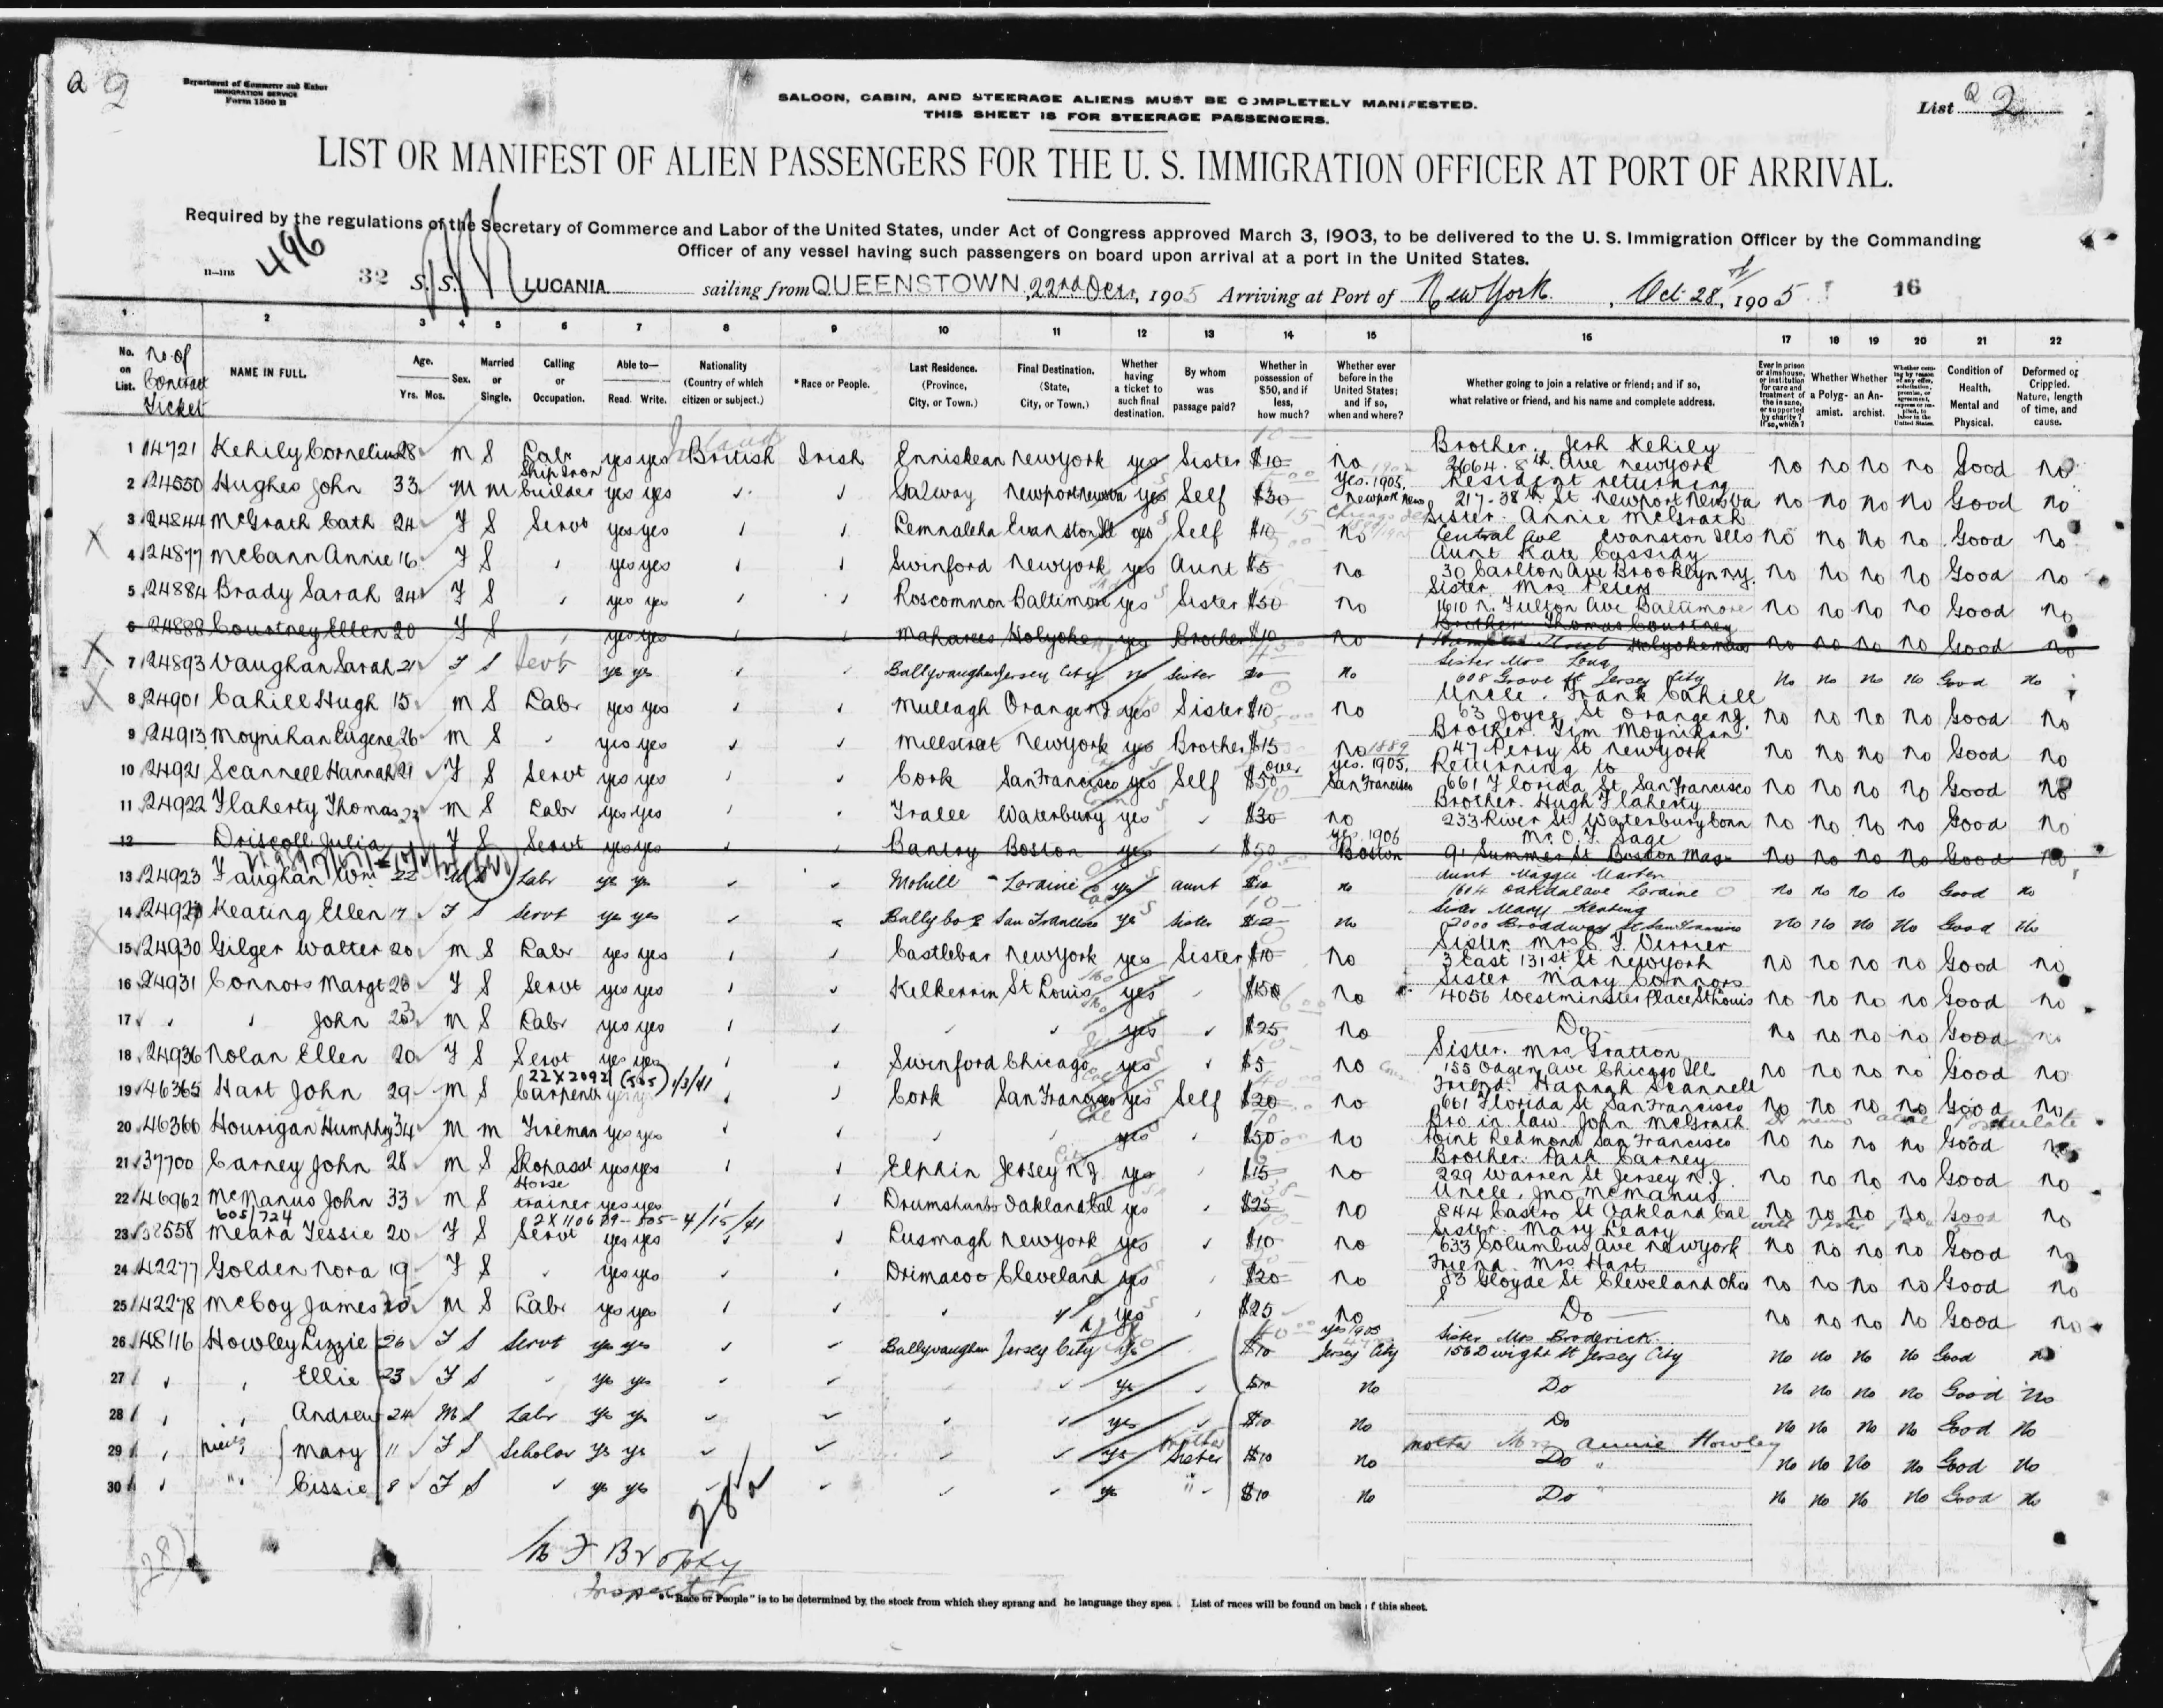 Q 2
Department of Commerce and Labor
IMMIGRATION SERVICE
Form 1500 B
SALOON, CABIN, AND STEERAGE ALIENS MUST BE COMPLETELY MANIFESTED.
THIS SHEET IS FOR STEERAGE PASSENGERS.
List Q 2
LIST OR MANIFEST OF ALIEN PASSENGERS FOR THE U. S. IMMIGRATION OFFICER AT PORT OF ARRIVAL.
Required by the regulations of the Secretary of Commerce and Labor of the United States, under Act of Congress approved March 3, 1903, to be delivered to the U. S. Immigration Officer by the Commanding
Officer of any vessel having such passengers on board upon arrival at a port in the United States.
496
32 S.S. LUCANIA sailing from QUEENSTOWN, 22nd Octr, 1905 Arriving at Port of New York, Oct 28, 1905 16
1 2 3 4 5 6 7 8 9 10 11 12 13 14 15 16 17 18 19 20 21 22
No. on List. No of Contract Ticket NAME IN FULL. Age. Yrs. Mos. Sex. Married or Single. Calling or Occupation. Able to— Read. Write. Nationality (Country of which citizen or subject.) *Race or People. Last Residence. (Province, City, or Town.) Final Destination. (State, City, or Town.) Whether having a ticket to such final destination. By whom was passage paid? Whether in possession of $50, and if less, how much? Whether ever before in the United States; and if so, when and where? Whether going to join a relative or friend; and if so, what relative or friend, and his name and complete address. Ever in prison or almshouse, or institution for care and treatment of the insane, or supported by charity? If so, which? Whether a Polygamist. Whether an Anarchist. Condition of Health, Mental and Physical. Deformed or Crippled. Nature, length of time, and cause.
1 14721 Kehily Cornelius 28 M S Labr yes yes British Irish Enniskean New York yes Sister $10 no Brother. Jerh Kehily 2664. 8th Ave New York no no no no Good no
2 24550 Hughes John 33 M M Ship Iron builder yes yes Galway Newport News Va yes Self $30 yes. 1905. Newport News Resident returning 217-38th St Newport News Va no no no no Good no
3 24844 McGrath Cath 24 F S Servt yes yes Evanston Ill yes Self $10 no Sister. Annie McGrath Central Ave Evanston Ills no no no no Good no
4 24877 McCann Annie 16 F S yes yes Swinford New York yes Aunt $5 no Aunt Kate Cassidy 30 Carlton Ave Brooklyn N.Y. no no no no Good no
5 24884 Brady Sarah 24 F S yes yes Roscommon Baltimore yes Sister $30 no Sister Mrs Peters 1610 N. Fulton Ave Baltimore no no no no Good no
6 24888 Courtney Ellen 20 F S yes yes Maharees Holyoke yes Brother $10 no Brother Thomas Courtney Holyoke Mass no no no no Good no
7 24893 Vaughan Sarah 21 F S Servt yes yes Ballyvaughan Jersey City Sister no Sister Mrs Long 608 Grove St Jersey City no no no no Good no
8 24901 Cahill Hugh 15 M S Labr yes yes Mullagh Orange NJ yes Sister $10 no Uncle. Frank Cahill 63 Joyce St Orange NJ. no no no no Good no
9 24913 Moynihan Eugene 26 M S yes yes Millstreet New York yes Brother $15 no Brother. Tim Moynihan 47 Perry St New York no no no no Good no
10 24921 Scannell Hannah 21 F S Servt yes yes Cork San Francisco yes Self over $50 yes. 1905. San Francisco Returning to 661 Florida St. San Francisco no no no no Good no
11 24922 Flaherty Thomas 23 M S Labr yes yes Tralee Waterbury yes $30 no Brother. Hugh Flaherty 233 River St. Waterbury Conn no no no no Good no
12 Driscoll Julia F S Servt yes yes Bantry Boston yes $50 yes 1906 Boston Mr. O. F. Sage 91 Summer St Boston Mass no no no no Good no
13 24923 Faughan Wm 22 M S Labr yes yes Mohill Loraine yes aunt $10 no Aunt Maggie Marten 1604 Oakdale Ave Loraine no no no no Good no
14 Keating Ellen 17 F S Servt yes yes San Francisco yes Sister no Sister Mary Keating 2000 Broadway St San Francisco no no no no Good no
15 24930 Gilger Walter 20 M S Labr yes yes Castlebar New York yes Sister $10 no Sister Mrs 3 East 131st St New York no no no no Good no
16 24931 Connors Margt F S Servt yes yes Kilkerrin St Louis yes $150 no Sister Mary Connors 4056 Westminster Place St Louis no no no no Good no
17 John M S Labr yes yes yes $25 no Do no no no no Good no
18 24936 Nolan Ellen 20 F S Servt yes yes Swinford Chicago yes $5 no Sister. Mrs Gratton 155 Ogden Ave Chicago Ill no no no no Good no
22X2092 (505) 1/3/41
19 46365 Hart John 29 M S Carpenter Cork San Francisco yes Self $20 no Friend. Hannah Scannell 661 Florida St San Francisco no no no no Good no
20 46366 Hourigan Humphry 34 M M Fireman yes yes yes $50 no Bro in law. John McGrath Point Redmond San Francisco no no no no Good no
21 37700 Carney John 28 M S Shop asst yes yes Elphin Jersey N.J. yes $15 no Brother. Patk Carney 229 Warren St Jersey N.J. no no no no Good no
22 46962 McManus John 33 M S Horse trainer yes yes Drumshanbo Oakland Cal yes $25 no Uncle. Jno McManus 844 Castro St Oakland Cal no no no no Good no
605/724 2X110679-505-4/15/41
23 Meara Jessie 20 F S Servt yes yes Lusmagh New York yes $10 no Sister. Mary Leary 633 Columbus Ave New York no no no no Good no
24 42277 Golden Nora 19 F S yes yes Cleveland yes $20 no Friend. Mrs Hart 83 Cloyde St Cleveland Ohio no no no no Good no
25 42278 McCoy James M S Labr yes yes yes $25 no Do no no no no Good no
26 48116 Howley Lizzie 26 F S Servt yes yes Ballyvaughan Jersey City yes $10 yes 1905 Jersey City Sister Mrs Broderick 156 Dwight St Jersey City no no no no Good no
27 Ellie 23 F S yes yes yes $10 no Do no no no no Good no
28 Andrew 24 M S Labr yes yes yes $10 no Do no no no no Good no
29 Mary 11 F S Scholar yes yes yes Sister $10 no mother Mrs Annie Howley Do no no no no Good no
30 Cissie 8 F S yes yes yes $10 no Do no no no no Good no
Brophy
Inspector
*"Race or People" is to be determined by the stock from which they sprang and he language they spea . List of races will be found on back f this sheet.